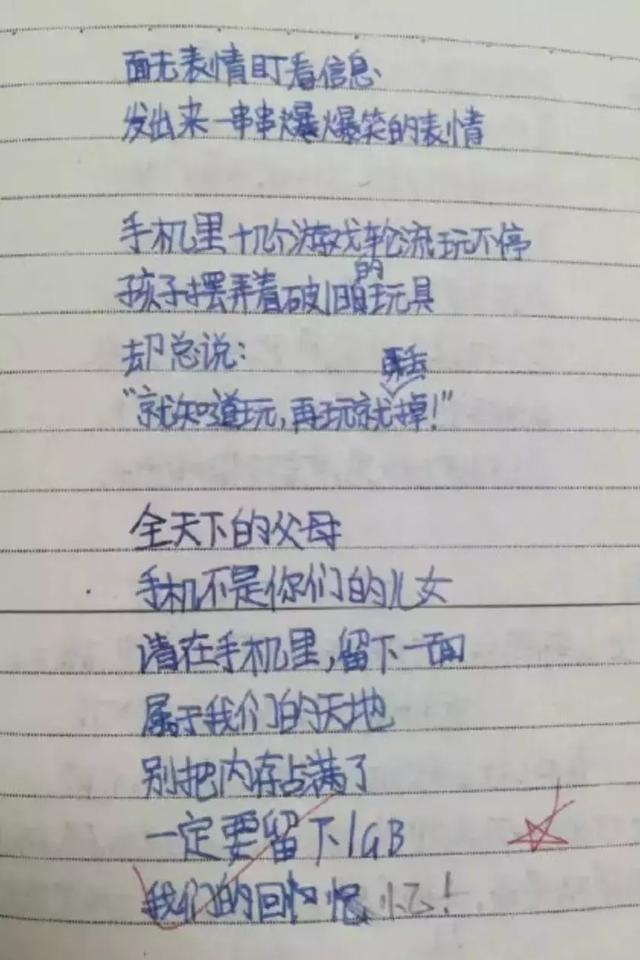 面无表情盯看信息、
发出来一串串爆爆笑的表情
手机里十几个游戏轮流玩不停
孩子摆弄着破旧的玩具
却总说:
"就知道玩,再玩就丢掉!"
全天下的父母
手机不是你们的儿女
请在手机里,留下一面
属于我们的天地
别把内存占满了
一定要留下1GB
我们的回忆!